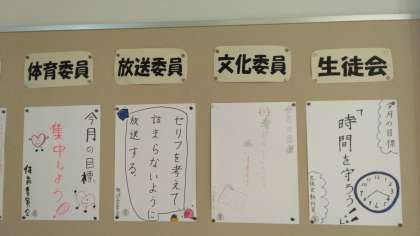 体育委員
放送委員
文化委員
生徒会
今月の目標
集中しよう
体育委員会
セリフを考えて
詰まらないように
放送する。
今月の目標
今月の目標
「時間を守ろう」